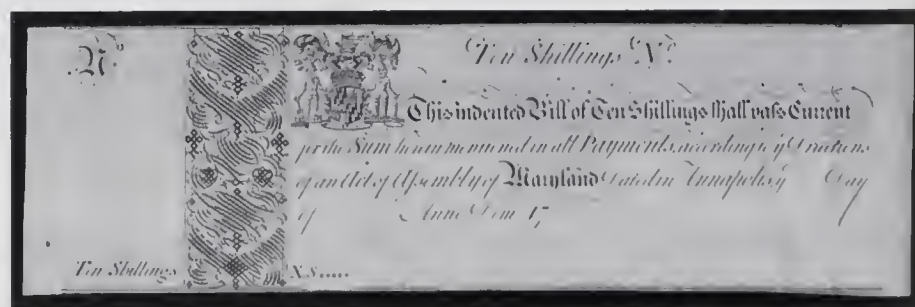 No.
Ten Shillings No.
This indented Bill of Ten Shillings shall pass Current
for the Sum herein mentioned in all Payments, according to ye Directions
of an Act of Assembly of Maryland Dated in Annapolis ye Day
of Anno Dom 17
Ten Shillings X S.....